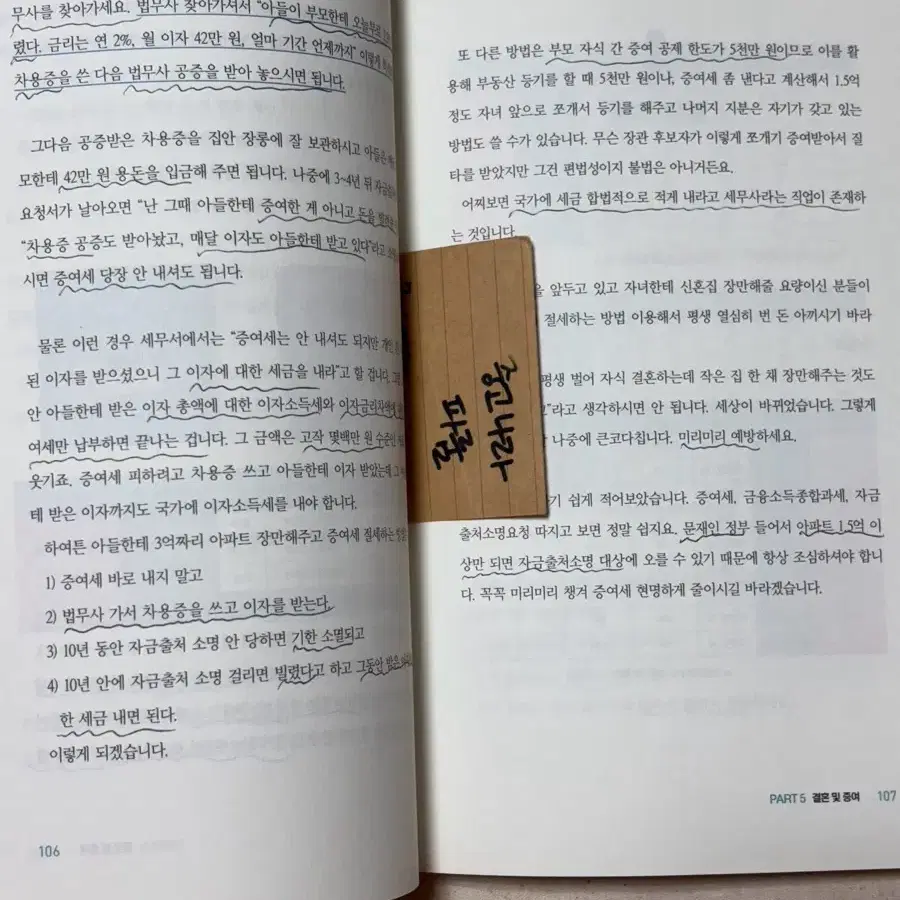 무사를 찾아가세요. 법무사 찾아가셔서 “아들이 부모한테 오늘부로
렸다. 금리는 연 2%, 월 이자 42만 원, 얼마 기간 언제까지” 이렇게
차용증을 쓴 다음 법무사 공증을 받아 놓으시면 됩니다.
그다음 공증받은 차용증을 집안 장롱에 잘 보관하시고 아들은
모한테 42만 원 용돈을 입금해 주면 됩니다. 나중에 3~4년 뒤
요청서가 날아오면 “난 그때 아들한테 증여한 게 아니고 돈을
“차용증 공증도 받아놨고, 매달 이자도 아들한테 받고 있다”라고
시면 증여세 당장 안 내셔도 됩니다.
물론 이런 경우 세무서에서는 “증여세는 안 내셔도 되지만
된 이자를 받으셨으니 그 이자에 대한 세금을 내라”고 할 겁니다.
안 아들한테 받은 이자 총액에 대한 이자소득세와
여세만 납부하면 끝나는 겁니다. 그 금액은 고작 몇백만 원
웃기죠. 증여세 피하려고 차용증 쓰고 아들한테 이자 받았는데 그
테 받은 이자까지도 국가에 이자소득세를 내야 합니다.
하여튼 아들한테 3억짜리 아파트 장만해주고 증여세 절세하는
1) 증여세 바로 내지 말고
2) 법무사 가서 차용증을 쓰고 이자를 받는다.
3) 10년 동안 자금출처 소명 안 당하면 기한 소멸되고
4) 10년 안에 자금출처 소명 걸리면 빌렸다고 하고 그동안 받은
한 세금 내면 된다.
이렇게 되겠습니다.
106
송고내라
파콜
또 다른 방법은 부모 자식 간 증여 공제 한도가 5천만 원이므로 이를 활
용해 부동산 등기를 할 때 5천만 원이나, 증여세 좀 낸다고 계산해서 1.5억
정도 자녀 앞으로 쪼개서 등기를 해주고 나머지 지분은 자기가 갖고 있는
방법도 쓸 수가 있습니다. 무슨 장관 후보자가 이렇게 쪼개기 증여받아서 질
타를 받았지만 그건 편법성이지 불법은 아니거든요.
어찌보면 국가에 세금 합법적으로 적게 내라고 세무사라는 직업이 존재하
는 것입니다.
을 앞두고 있고 자녀한테 신혼집 장만해줄 요량이신 분들이
절세하는 방법 이용해서 평생 열심히 번 돈 아끼시기 바라
평생 벌어 자식 결혼하는데 작은 집 한 채 장만해주는 것도
라고 생각하시면 안 됩니다. 세상이 바뀌었습니다. 그렇게
나중에 큰코다칩니다. 미리미리 예방하세요.
기 쉽게 적어보았습니다. 증여세, 금융소득종합과세, 자금
출처소명요청 따지고 보면 정말 쉽지요. 문재인 정부 들어서 아파트 1.5억 이
상만 되면 자금출처소명 대상에 오를 수 있기 때문에 항상 조심하셔야 합니
다. 꼭꼭 미리미리 챙겨 증여세 현명하게 줄이시길 바라겠습니다.
PART 5 결혼 및 증여 107